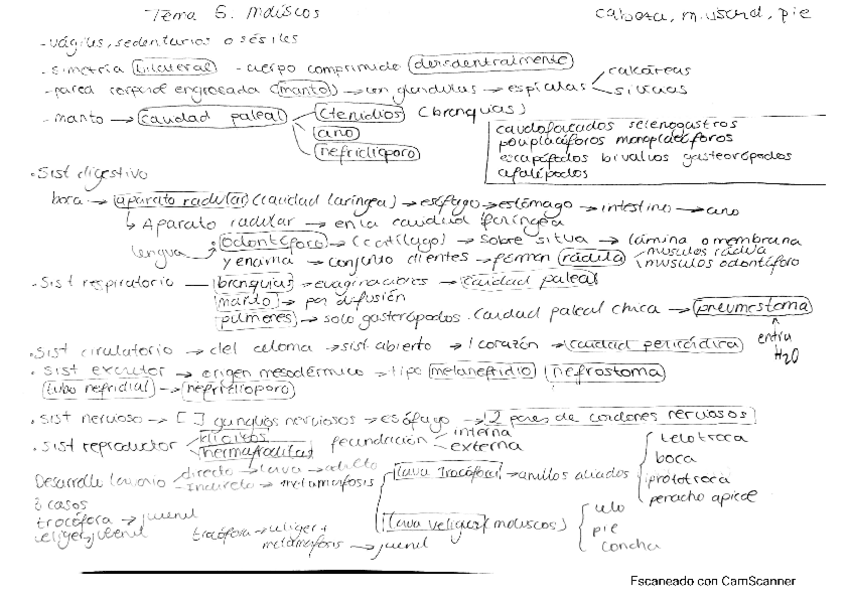 Tema 5. Moluscos
cabeza, m. visceral, pie
- vágiles, sedentarios o sésiles
- simetría bilateral - cuerpo comprimido dorsoventralmente
- pared corporal engrosada (manto) → con glándulas → espículas calcáreas
silíceas
- manto → cavidad paleal → ctenidios (branquias)
ano
nefridioporo
caudofoveados solenogastros
poliplacóforos monoplacóforos
escafópodos bivalvos gasterópodos
cefalópodos
· Sist digestivo
boca → aparato radular (cavidad faríngea) → esófago → estómago → intestino → ano
↳ Aparato radular → en la cavidad faríngea
lengua · odontóforo → (cartílago) → sobre sitúa → lámina o membrana
y encima → conjunto dientes → forman rádula músculos rádula
músculos odontóforo
· Sist respiratorio — branquias → evaginaciones → cavidad paleal
manto → por difusión
pulmones → solo gasterópodos. Cavidad paleal chica → pneumostoma
entra
H2O
· Sist circulatorio → del celoma → sist. abierto → 1 corazón → cavidad pericárdica
· Sist excretor → origen mesodérmico → tipo metanefridio (nefrostoma)
(tubo nefridial) → nefridioporo
· Sist nervioso → [ ] ganglios nerviosos → esófago → 2 pares de cordones nerviosos
· Sist reproductor dioicos
hermafroditas fecundación interna
externa
Desarrollo larvario directo → larva → adulto
indirecto → metamorfosis
larva trocófora → anillos ciliados
telotroca
boca
prototroca
penacho apical
3 casos
trocófora → juvenil
veliger → juvenil
trocófora → veliger +
metamorfosis → juvenil
larva veliger (moluscos)
velo
pie
concha
Escaneado con CamScanner